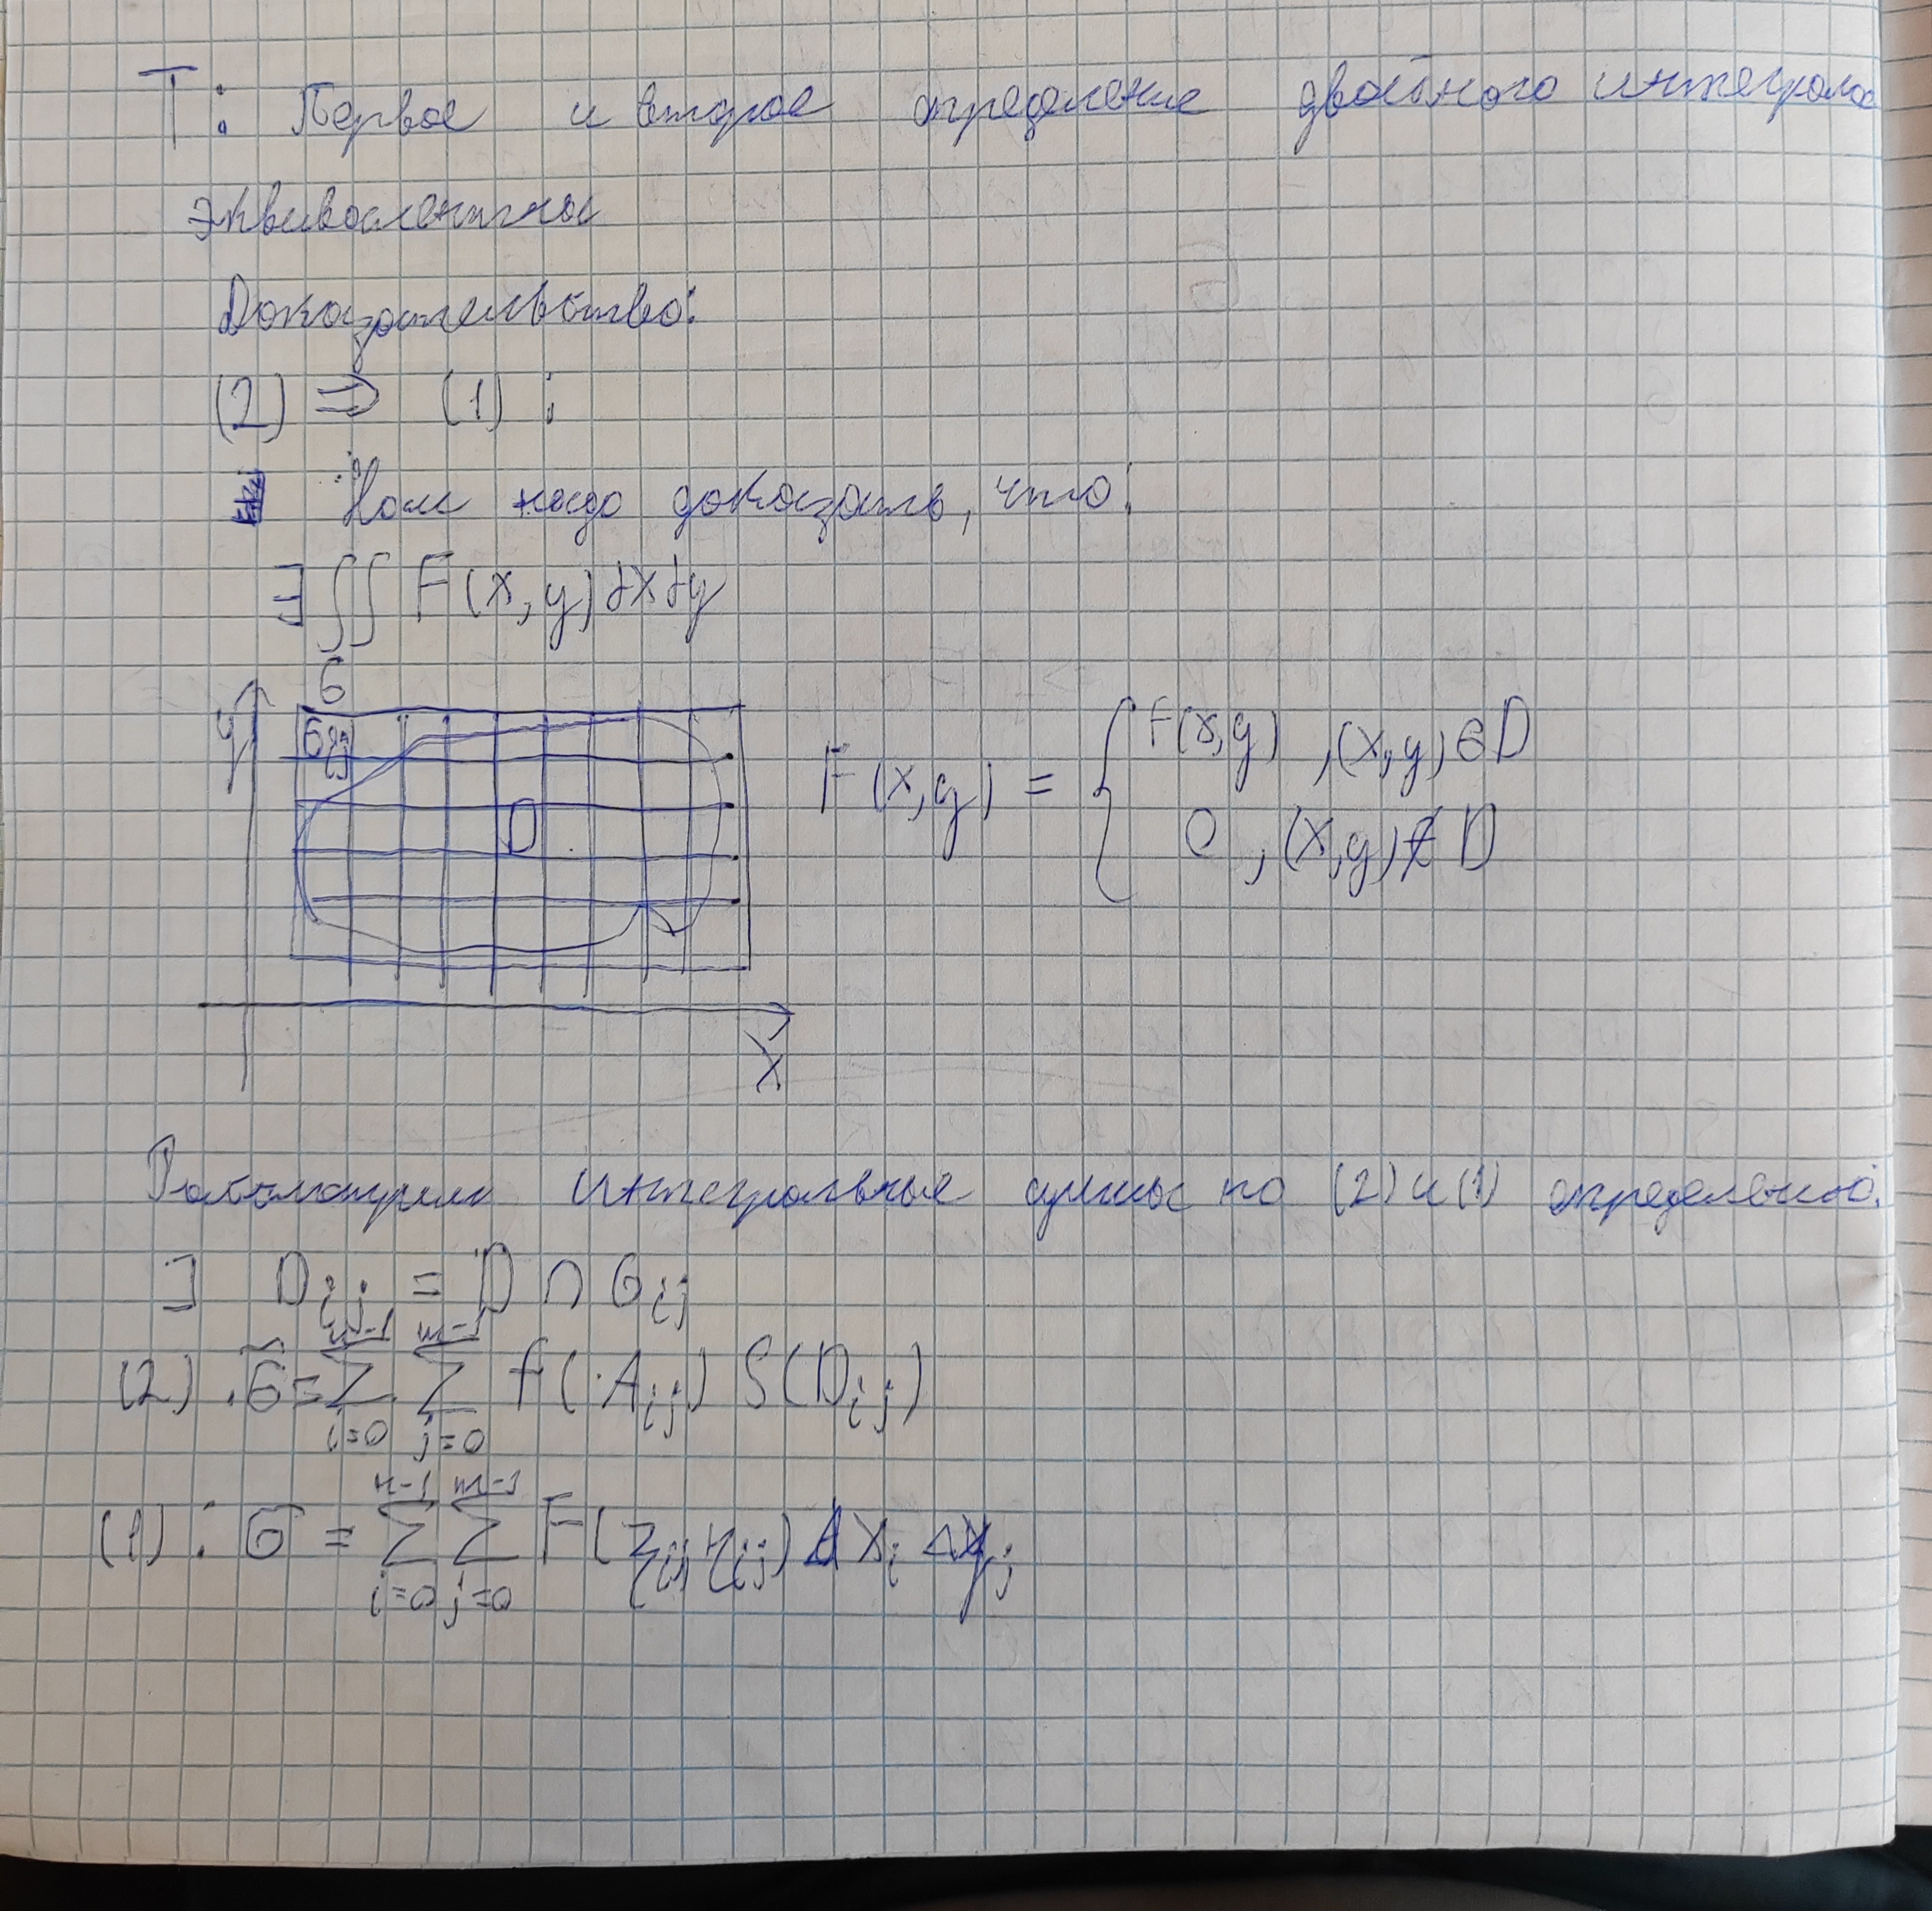 Т: Первое и второе определение двойного интеграла
эквивалентны
Доказательство:
(2) ⇒ (1):
Нам надо доказать, что:
∃ ∬ F(x,y) dx dy
G
y
Gij
D
x
F(x,y) = { f(x,y), (x,y) ∈ D
0, (x,y) ∉ D
Рассмотрим интегральные суммы по (2) и (1) определений.
∃ Dij = D ∩ Gij
(2). σ̃ = ∑_{i=0}^{n-1} ∑_{j=0}^{m-1} f(Aij) S(Dij)
(1): σ = ∑_{i=0}^{n-1} ∑_{j=0}^{m-1} F(ξij, ηij) Δxi Δyj